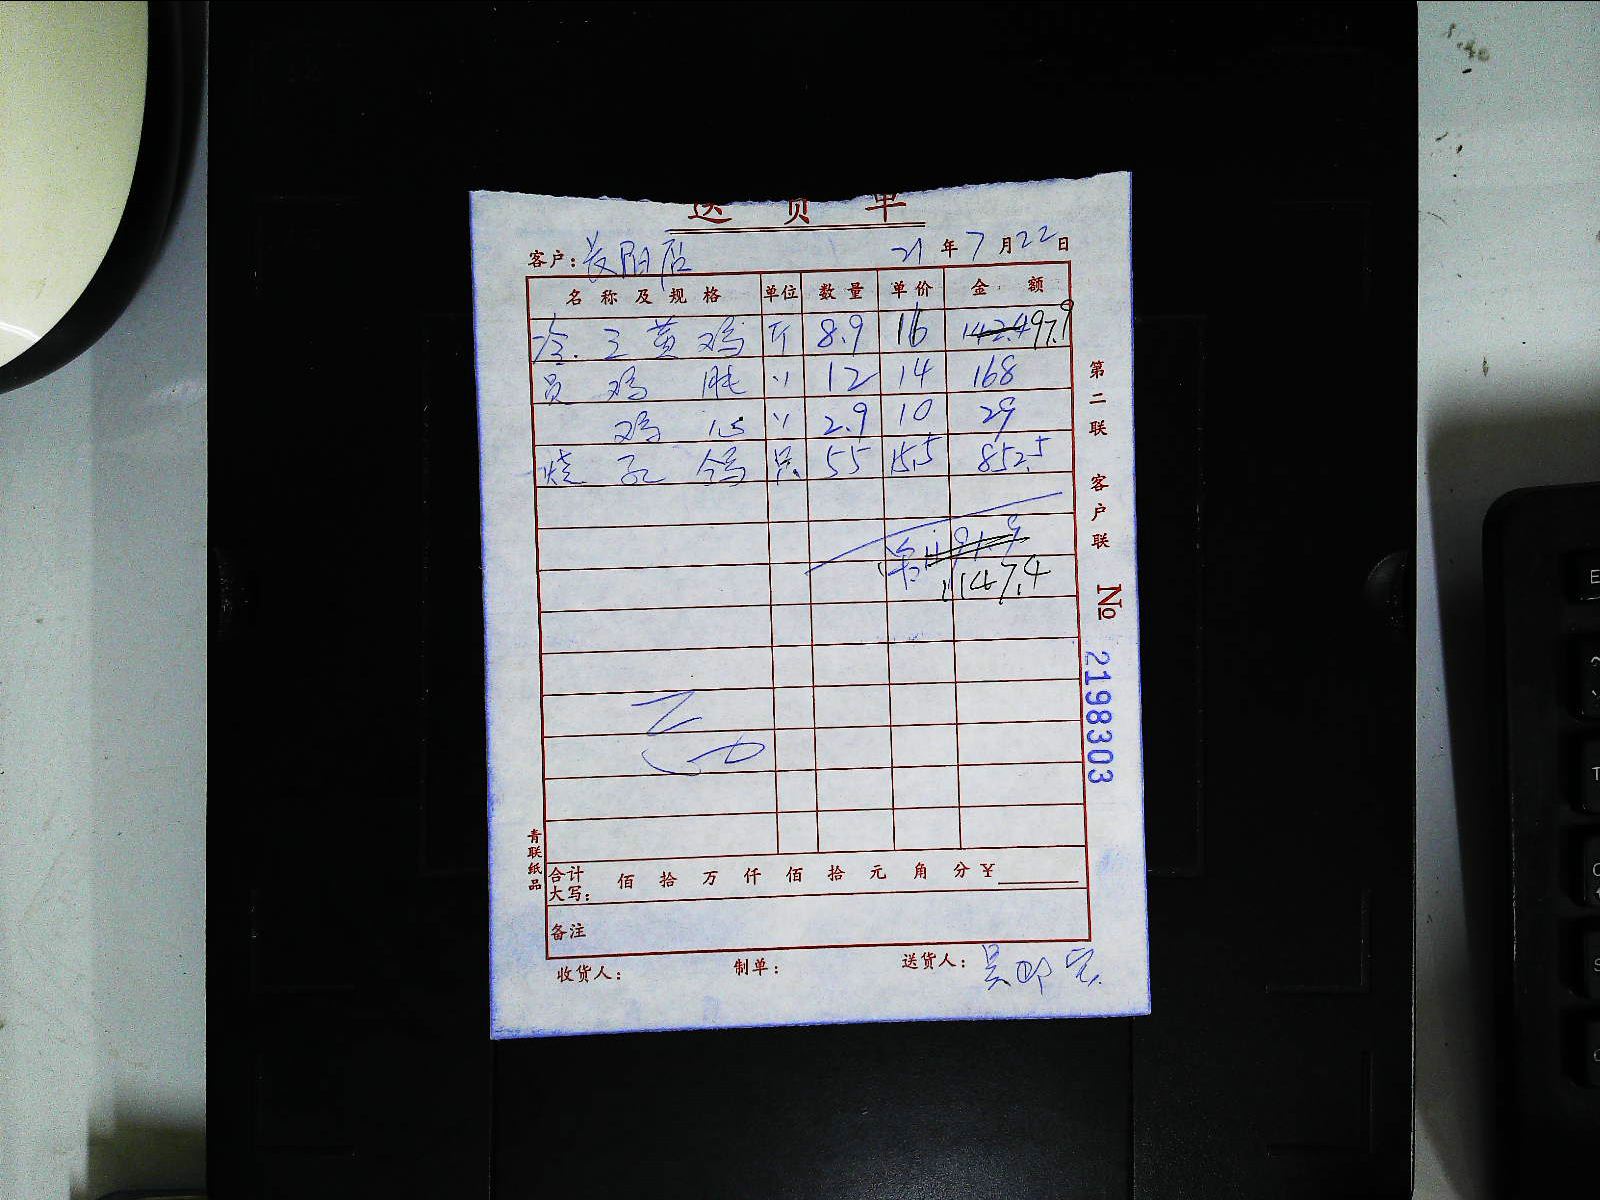 送 货 单
客户: 长阳店 21 年 7 月 22 日
名称及规格 单位 数量 单价 金额
冷.三黄鸡 斤 8.9 16 142.4 97.9
鸡肫 〃 12 14 168
鸡心 〃 2.9 10 29
烧 鸽 只 55 15.5 852.5
1191.9
1147.4
合计大写: 佰 拾 万 仟 佰 拾 元 角 分 ¥
备注
收货人: 制单: 送货人: 吴
第二联 客户联
№ 2198303
青联纸品